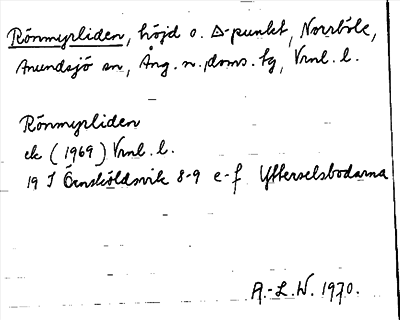 Rönmyrliden, höjd o. Δ-punkt, Norrböle,
Anundsjö sn, Ång. n. doms. tg, Vrnl. l.
Rönmyrliden
ek (1969) Vrnl. l.
19 I Örnsköldsvik 8-9 e-f Ytterselsbodarna
A.-L. W. 1970.